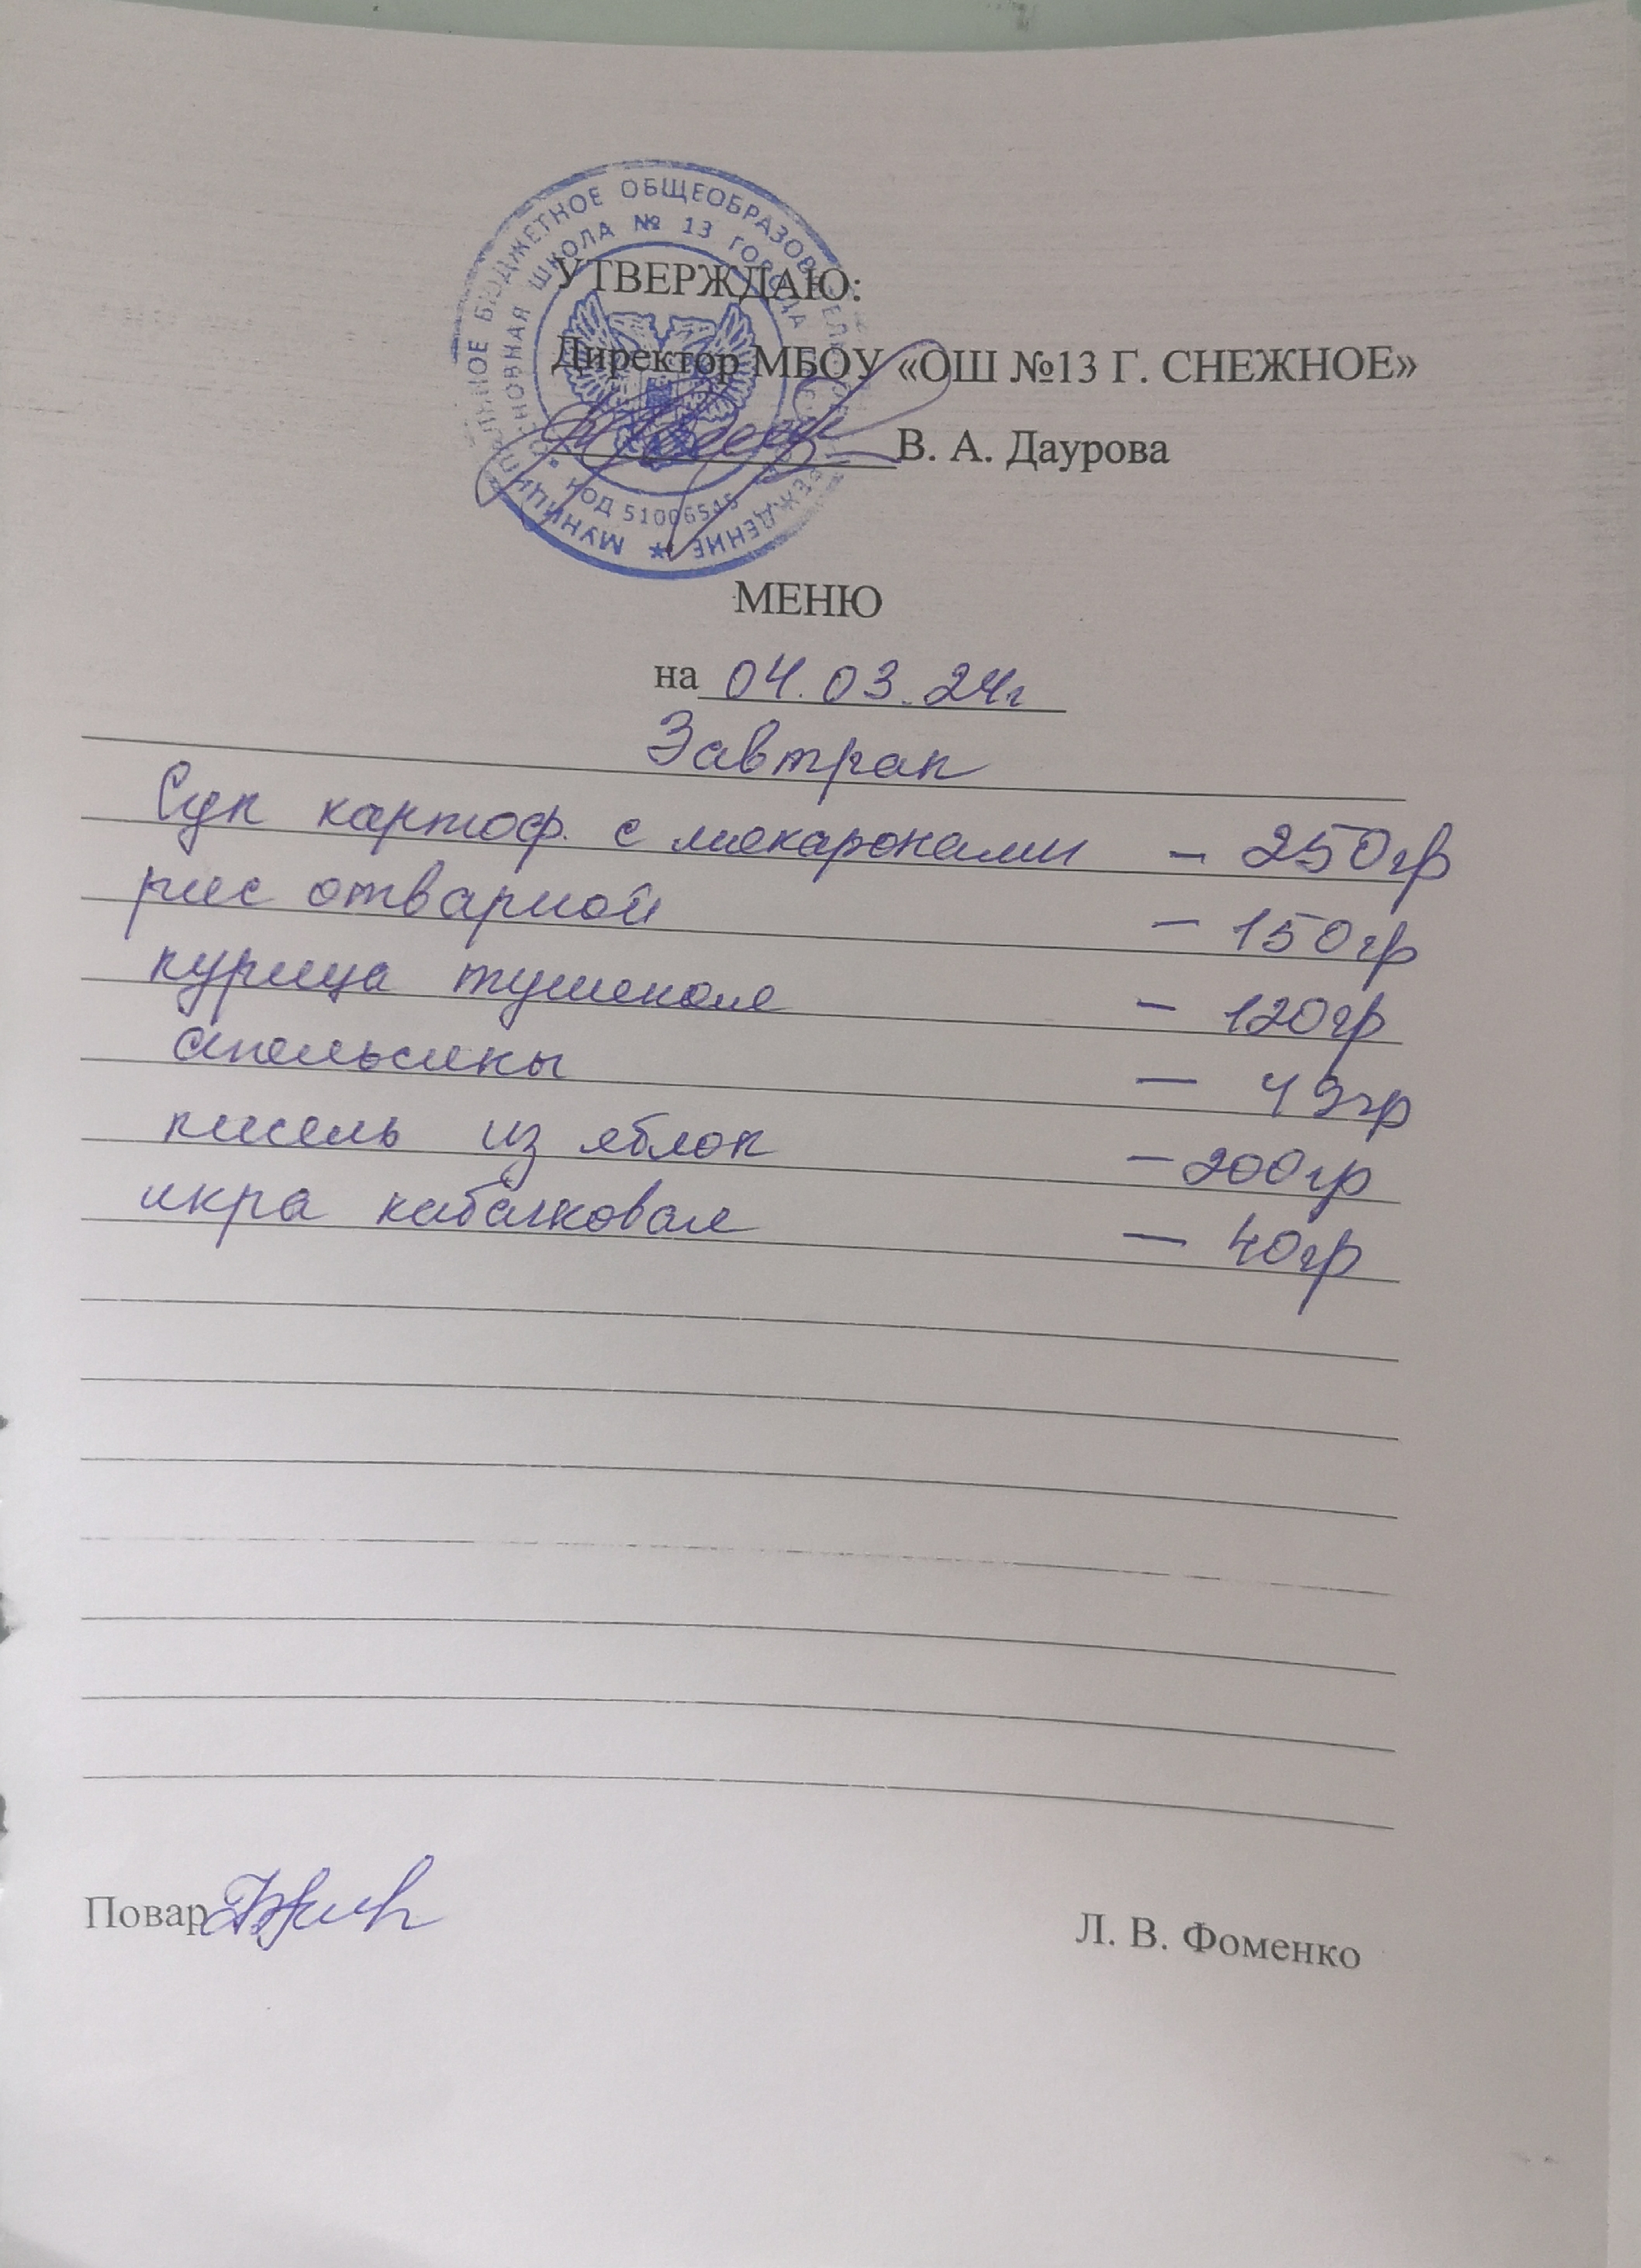 МУНИЦИПАЛЬНОЕ БЮДЖЕТНОЕ ОБЩЕОБРАЗОВАТЕЛЬНОЕ УЧРЕЖДЕНИЕ
ОСНОВНАЯ ШКОЛА № 13 ГОРОДА
КОД 51006545
УТВЕРЖДАЮ:
Директор МБОУ «ОШ №13 Г. СНЕЖНОЕ»
В. А. Даурова
МЕНЮ
на 04.03.24г
Завтрак
Суп картоф. с макаронами – 250гр
рис отварной – 150гр
курица тушеная – 120гр
апельсины – гр
кисель из яблок – 200гр
икра кабачковая – 40гр
Повар
Л. В. Фоменко